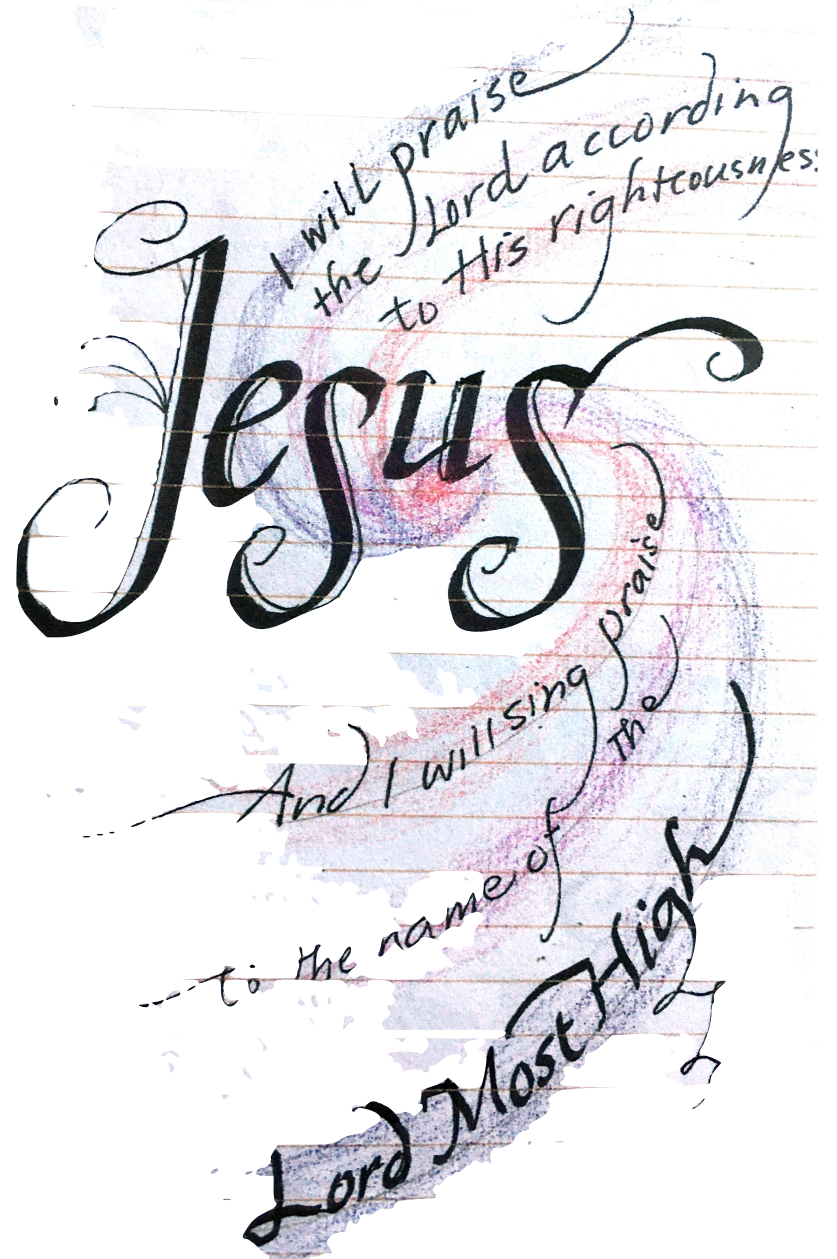 I will praise
the Lord according
to His righteousness
Jesus
And I will sing praise
to the name of the
Lord Most High